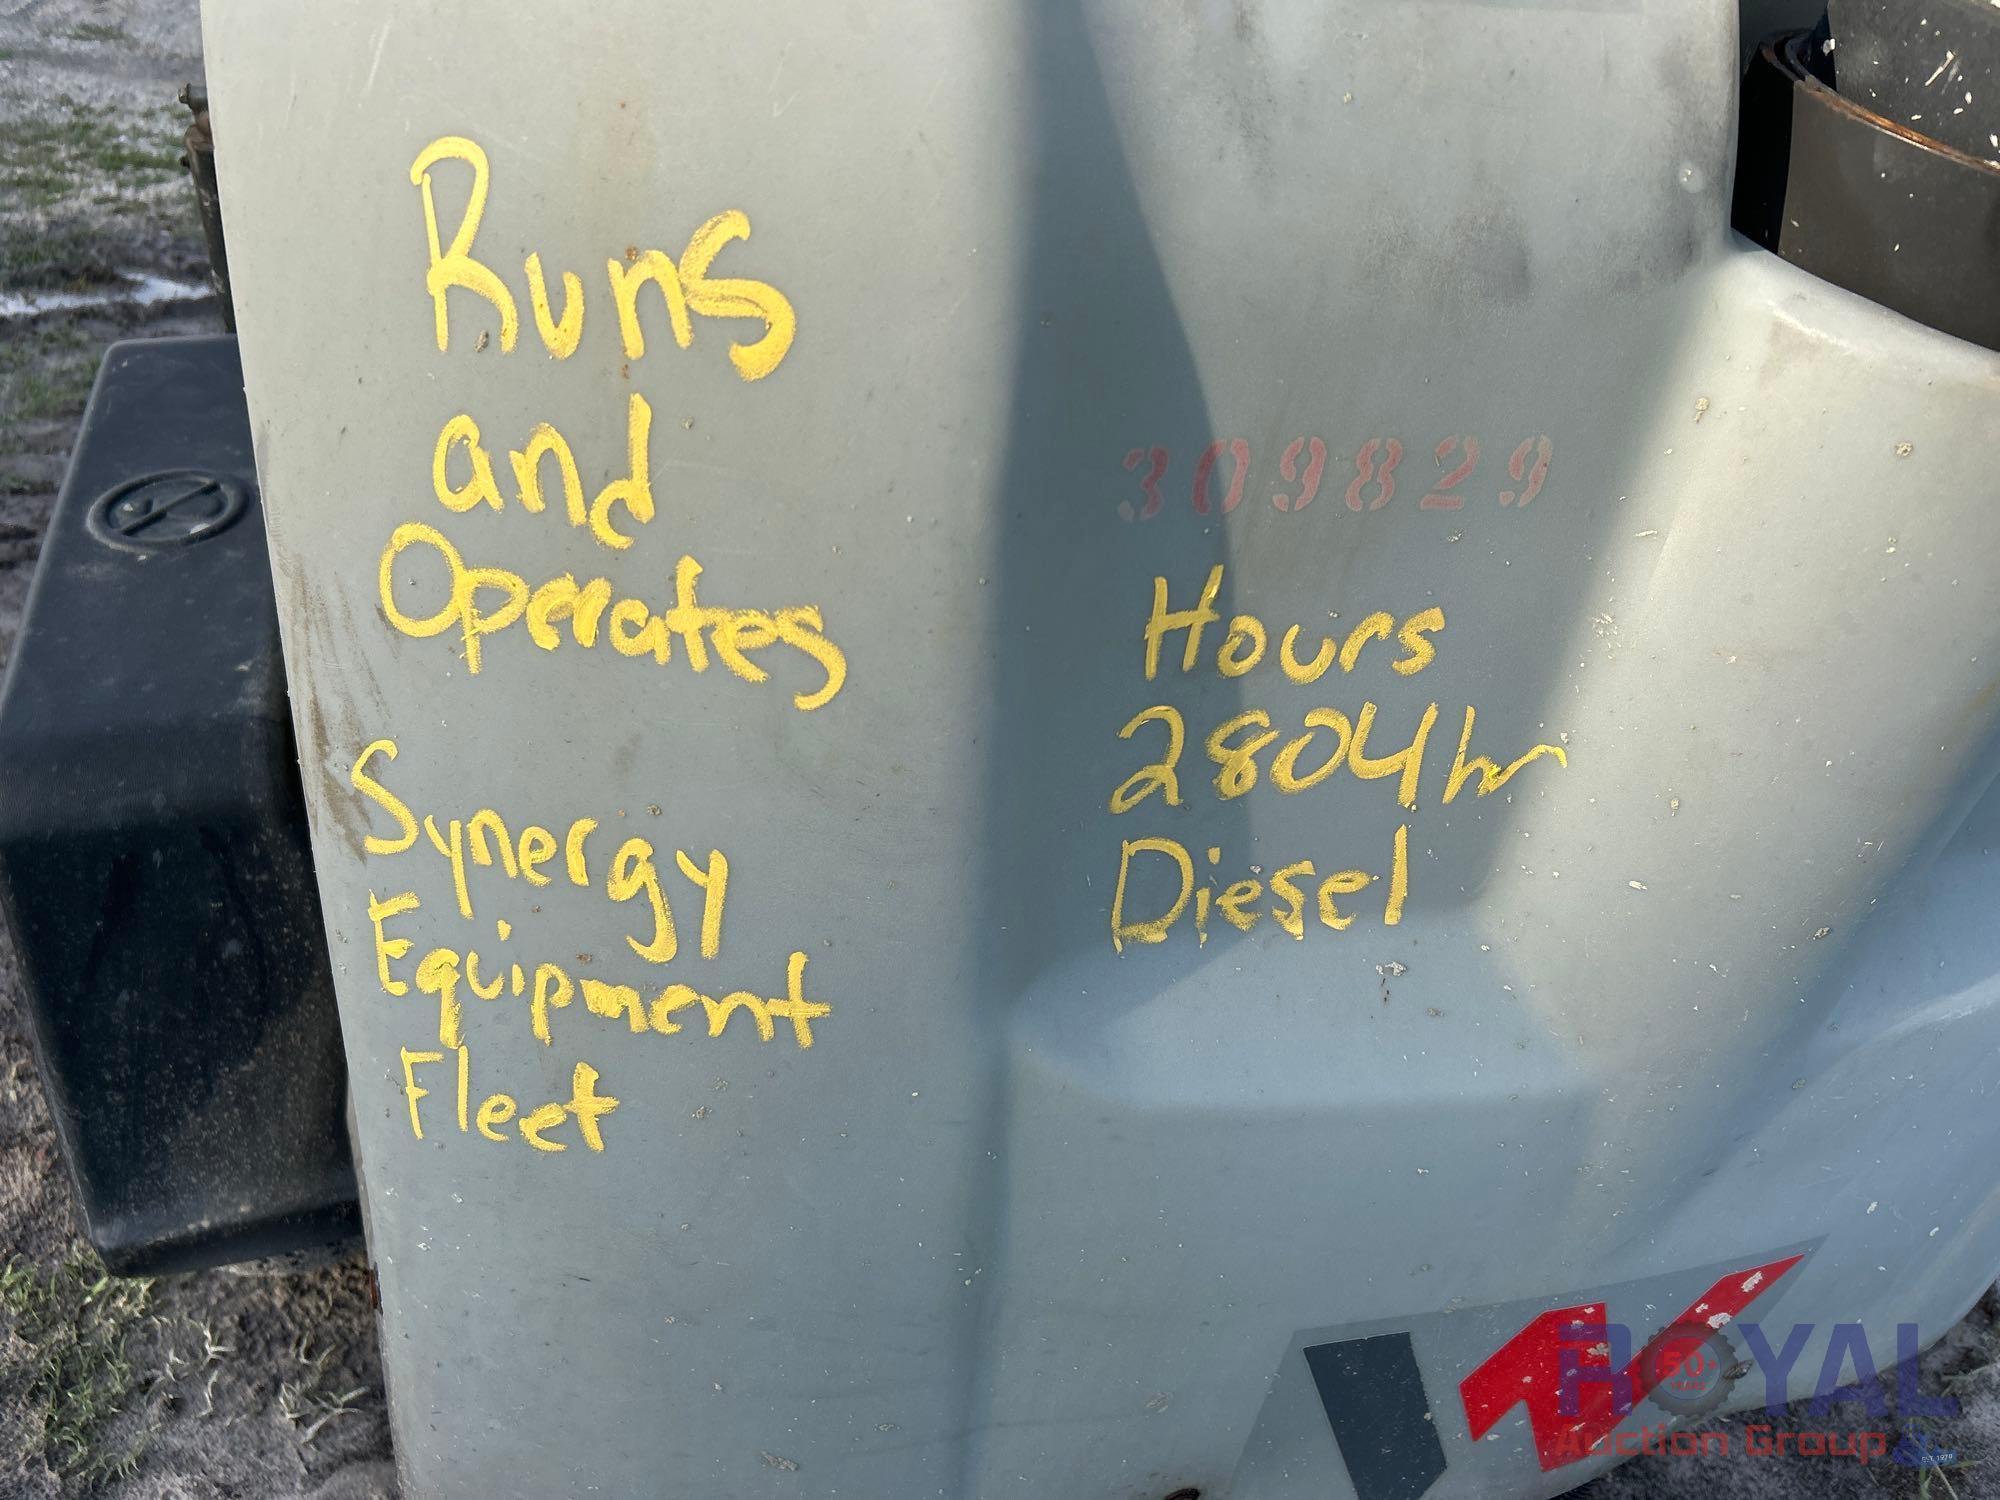 Runs
and
Operates
Synergy
Equipment
Fleet
309829
Hours
2804hr
Diesel
ROYAL
50+
YEARS
Auction Group
EST. 1979